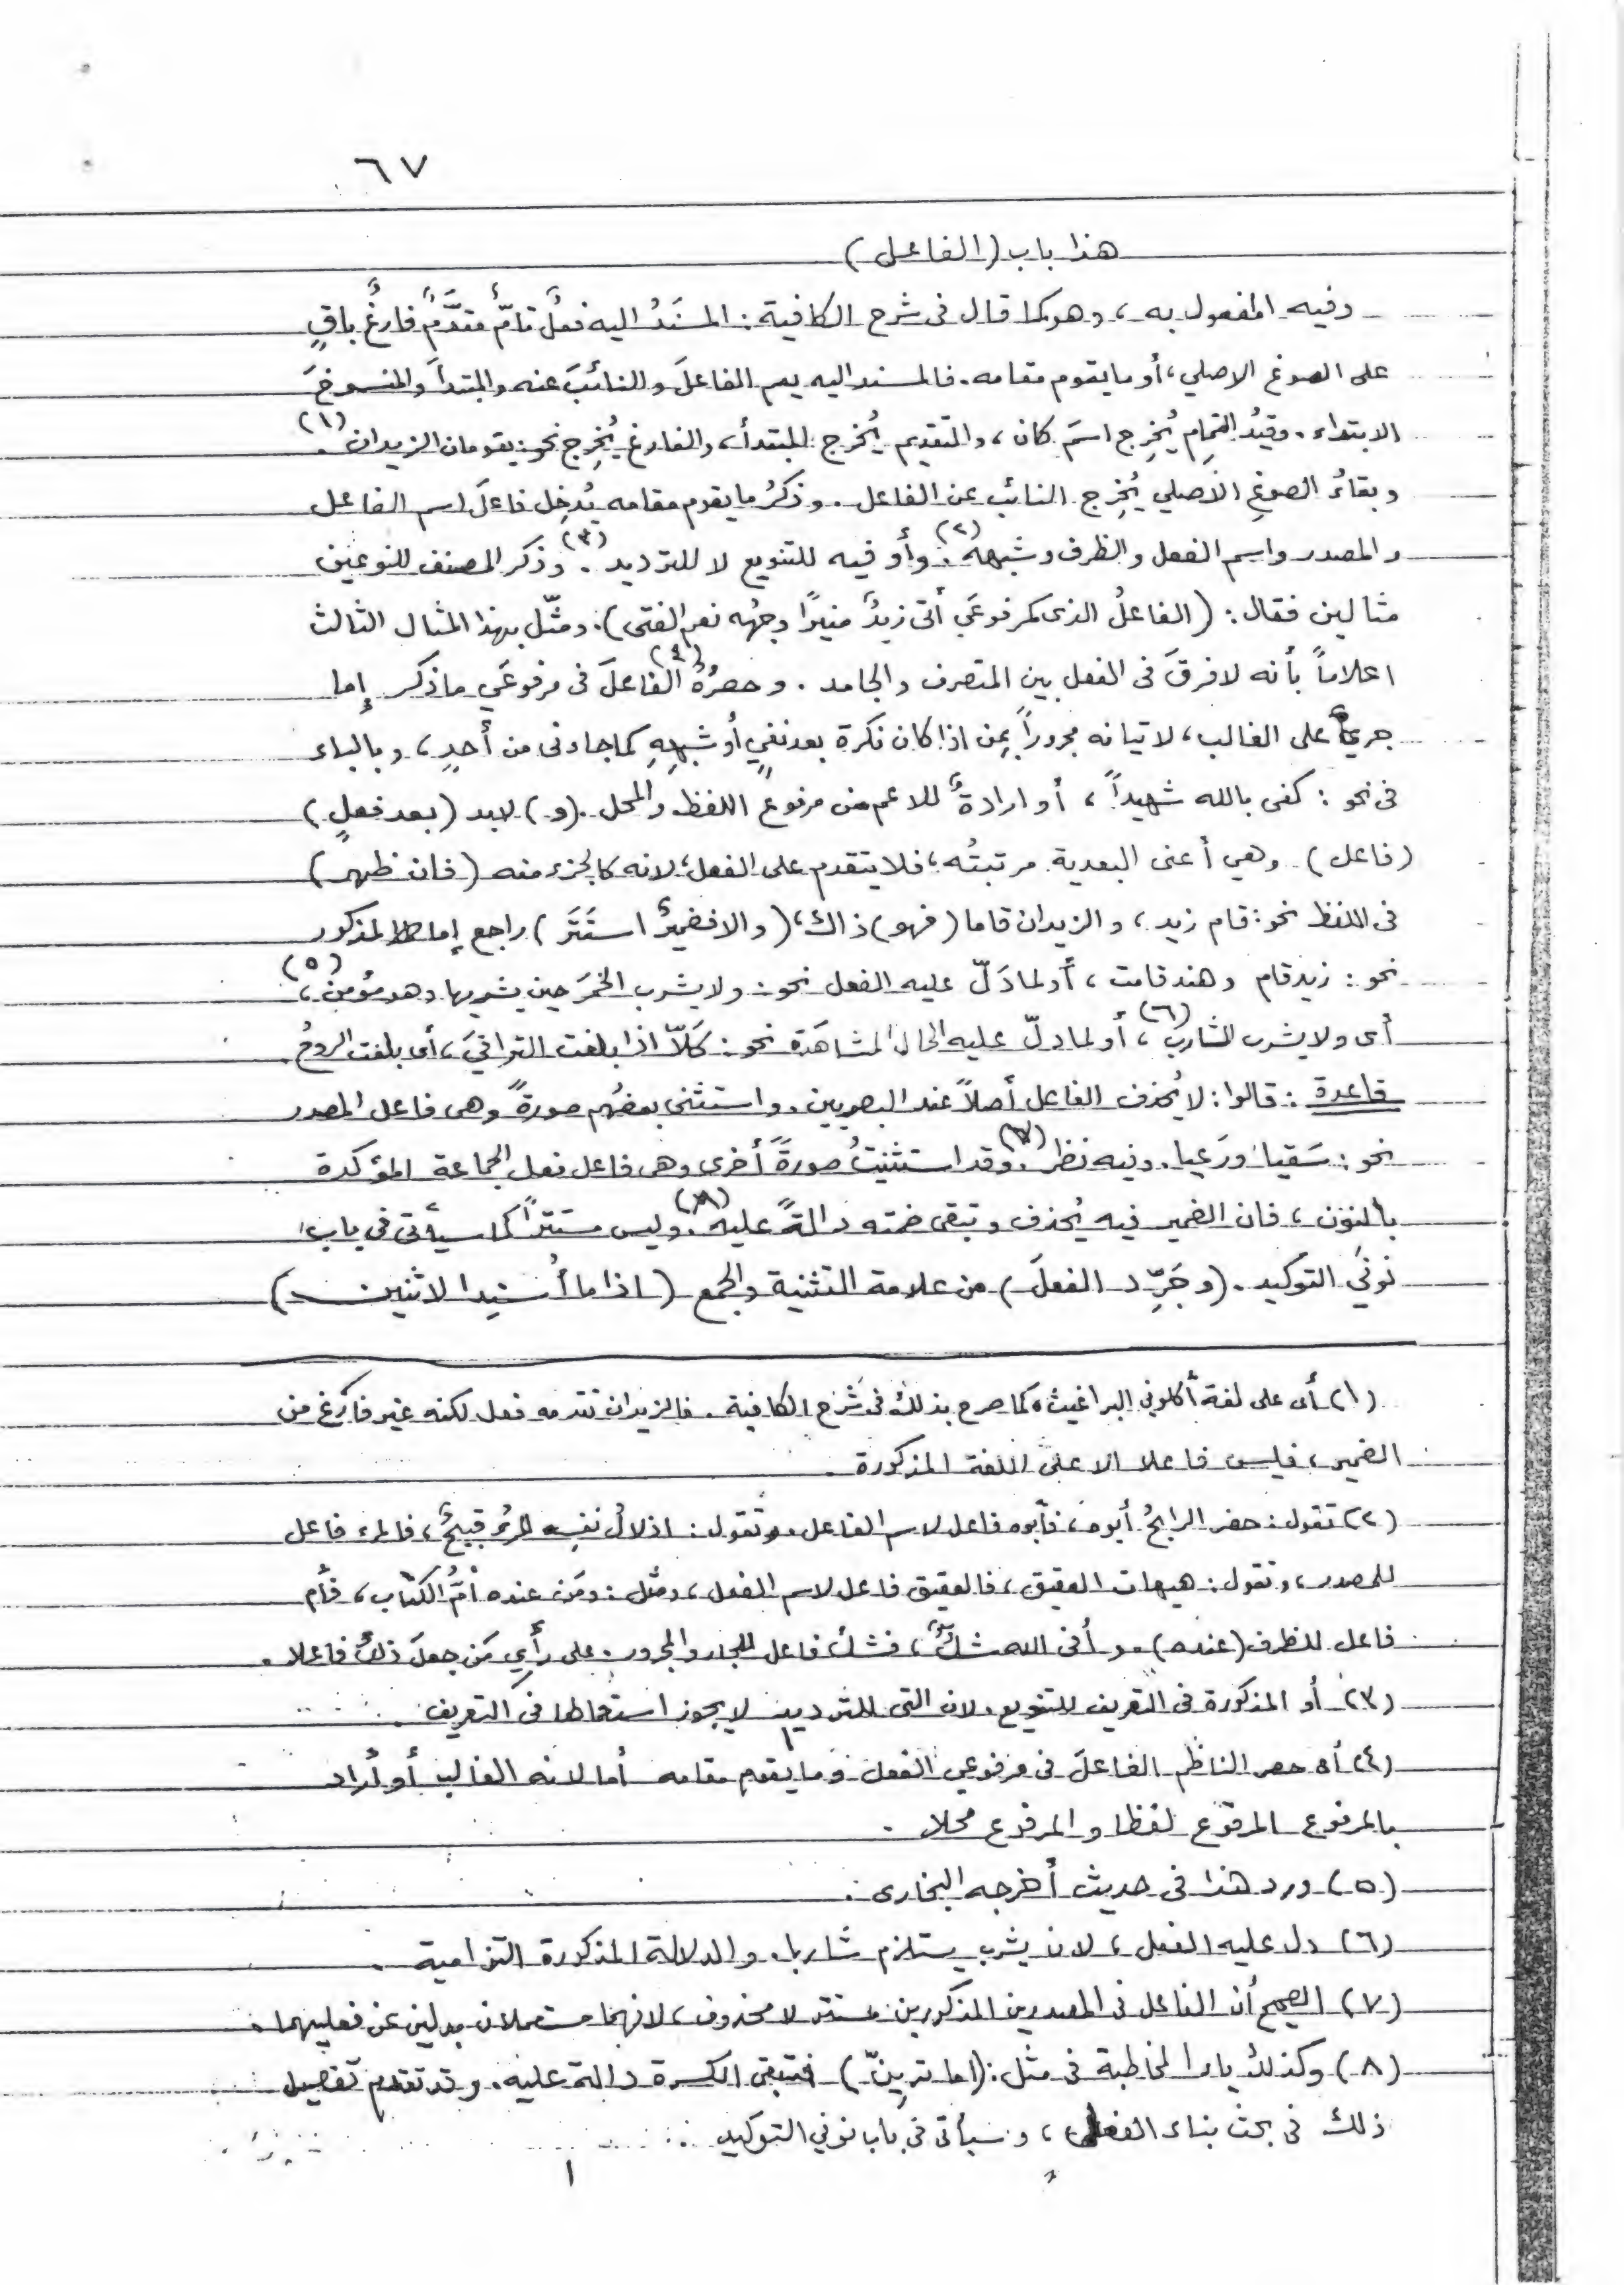 ٦٧
هذا باب (الفاعل)
وفيه المفعول به، وهو كما قال في شرح الكافية: المسنَدُ اليه فعلٌ تامٌّ مقدَّمٌ فارغٌ باقٍ
على الصوغ الاصلي، أو ما يقوم مقامه. فالمسند اليه يعم الفاعلَ والنائبَ عنه والمبتدأَ والمنسوخَ
الابتداء. وقيدُ التمامِ يُخرِج اسمَ كان، والتقديم يُخرج المبتدأ، والفارغ يُخرِج نحو: يقومان الزيدان (١).
وبقاءُ الصوغِ الأصلي يُخرِج النائب عن الفاعل. وذكرُ ما يقوم مقامه يُدخِل فاعلَ اسم الفاعل
والمصدر واسم الفعل والظرف وشبهه (٢). وأو فيه للتنويع لا للترديد (٣). وذكر المصنف للنوعين
مثالين فقال: (الفاعلُ الذى كمرفوعَي أتى زيدٌ منيرًا وجهُه نعم الفتى). ومثّل بهذا المثال الثالث
اعلاماً بأنه لا فرقَ في الفعل بين المتصرف والجامد. وحصرُهُ (٤) الفاعلَ في مرفوعَي ما ذكر إما
جريٌ على الغالب، لاتيانه مجروراً بمِن اذا كان نكرة بعد نفيٍ أو شبهِهِ كما جاءنى من أحدٍ، وبالباء
فى نحو: كفى بالله شهيداً، أو ارادةٌ للاعم من مرفوع اللفظ والمحل. (و) لابد (بعد فعلٍ)
(فاعل) وهي أعنى البعدية مرتبتُه، فلا يتقدم على الفعل، لانه كالجزء منه (فان ظهر)
فى اللفظ نحو: قام زيد، والزيدان قاما (فهو) ذاك، (والا فضميرٌ استَتَر) راجع إما لمذكور
نحو: زيد قام وهند قامت، أو لما دَلّ عليه الفعل نحو: ولا يشرب الخمرَ حين يشربها وهو مؤمن (٥)،
أى ولا يشرب الشارب (٦)، أو لما دلّ عليه الحال المشاهَدة نحو: كَلاّ اذا بلغت التراقيَ، أى بلغت الروحُ.
قاعدة: قالوا: لا يُحذف الفاعل أصلاً عند البصريين. واستثنى بعضُهم صورةً وهى فاعل المصدر
نحو: سَقيا ورَعيا. وفيه نظر (٧). وقد استثنيتُ صورةً أخرى وهى فاعل فعل الجماعة المؤكدة
بالنون، فان الضمير فيه يُحذف وتبقى ضمته دالةً عليه (٨). وليس مستتراً كما سيأتى في باب
نونَي التوكيد. (وجَرِّد الفعلَ) من علامة التثنية والجمع (اذا ما أُسنِدا لاثنين)
(١) أى على لغة أكلوني البراغيث، كما صرح بذلك فى شرح الكافية. فالزيدان تقدمه فعل لكنه غير فارغ من
الضمير، فليس فاعلا الا على اللغة المذكورة.
(٢) تقول: حضر الرابحُ أبوه، فأبوه فاعل لاسم الفاعل. وتقول: اذلالُ نفسِه المرءُ قبيحٌ، فالمرء فاعل
للمصدر، وتقول: هيهات العقيق، فالعقيق فاعل لاسم الفعل، ومثل: ومَن عنده أمُّ الكتاب، فأم
فاعل للظرف (عنده). و أفى الله شكٌ، فشك فاعل للجار والمجرور. على رأيِ مَن جعلَ ذلك فاعلا.
(٣) أو المذكورة فى التعريف للتنويع. لان التى للترديد لا يجوز استعمالها فى التعريف.
(٤) أى حصر الناظم الفاعلَ فى مرفوعي الفعل وما يقوم مقامه أما لانه الغالب أو أراد
بالمرفوع المرفوع لفظا والمرفوع محلا.
(٥) ورد هذا فى حديث أخرجه البخارى.
(٦) دل عليه الفعل، لان يشرب يستلزم شاربا. والدلالة المذكورة التزامية.
(٧) الصحيح أن الفاعل فى المصدرين المذكورين مستتر لا محذوف، لانهما مستعملان بدلين عن فعليهما.
(٨) وكذلك ياء المخاطبة فى مثل: (اما ترينّ) فتبقى الكسرة دالة عليه. وقد تقدم تفصيل
ذلك فى بحث بناء الفعل، وسيأتى فى باب نوني التوكيد.